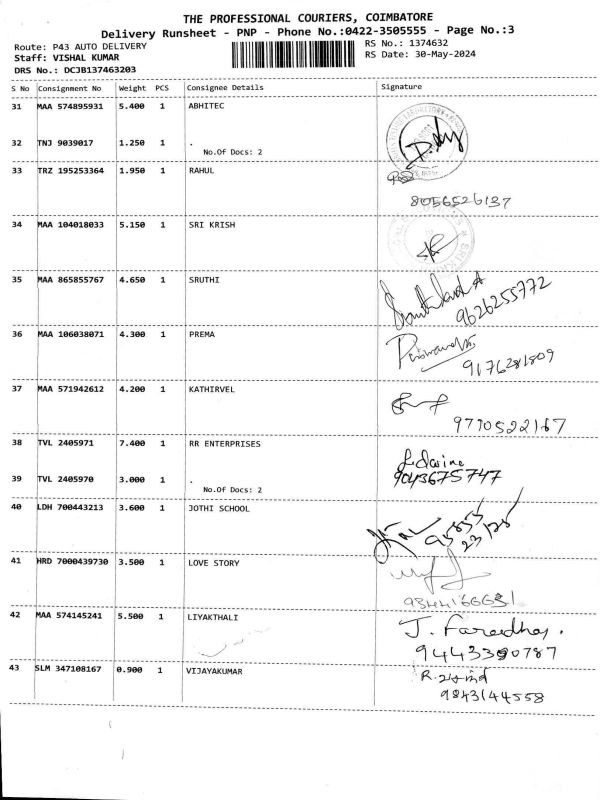 THE PROFESSIONAL COURIERS, COIMBATORE
Delivery Runsheet - PNP - Phone No.:0422-3505555 - Page No.:3
Route: P43 AUTO DELIVERY
RS No.: 1374632
Staff: VISHAL KUMAR
RS Date: 30-May-2024
DRS No.: DCJB137463203
S No Consignment No Weight PCS Consignee Details Signature
31 MAA 574895931 5.400 1 ABHITEC
32 TNJ 9039017 1.250 1 .
No.Of Docs: 2
33 TRZ 195253364 1.950 1 RAHUL
8056526137
34 MAA 104018033 5.150 1 SRI KRISH
35 MAA 865855767 4.650 1 SRUTHI
9626255772
36 MAA 106038071 4.300 1 PREMA
9176281809
37 MAA 571942612 4.200 1 KATHIRVEL
9790522167
38 TVL 2405971 7.400 1 RR ENTERPRISES
39 TVL 2405970 3.000 1 .
9043675747
No.Of Docs: 2
40 LDH 700443213 3.600 1 JOTHI SCHOOL
95855
23125
41 HRD 7000439730 3.500 1 LOVE STORY
9344166631
42 MAA 574145241 5.500 1 LIYAKTHALI
9443390787
43 SLM 347108167 0.900 1 VIJAYAKUMAR
9843144558